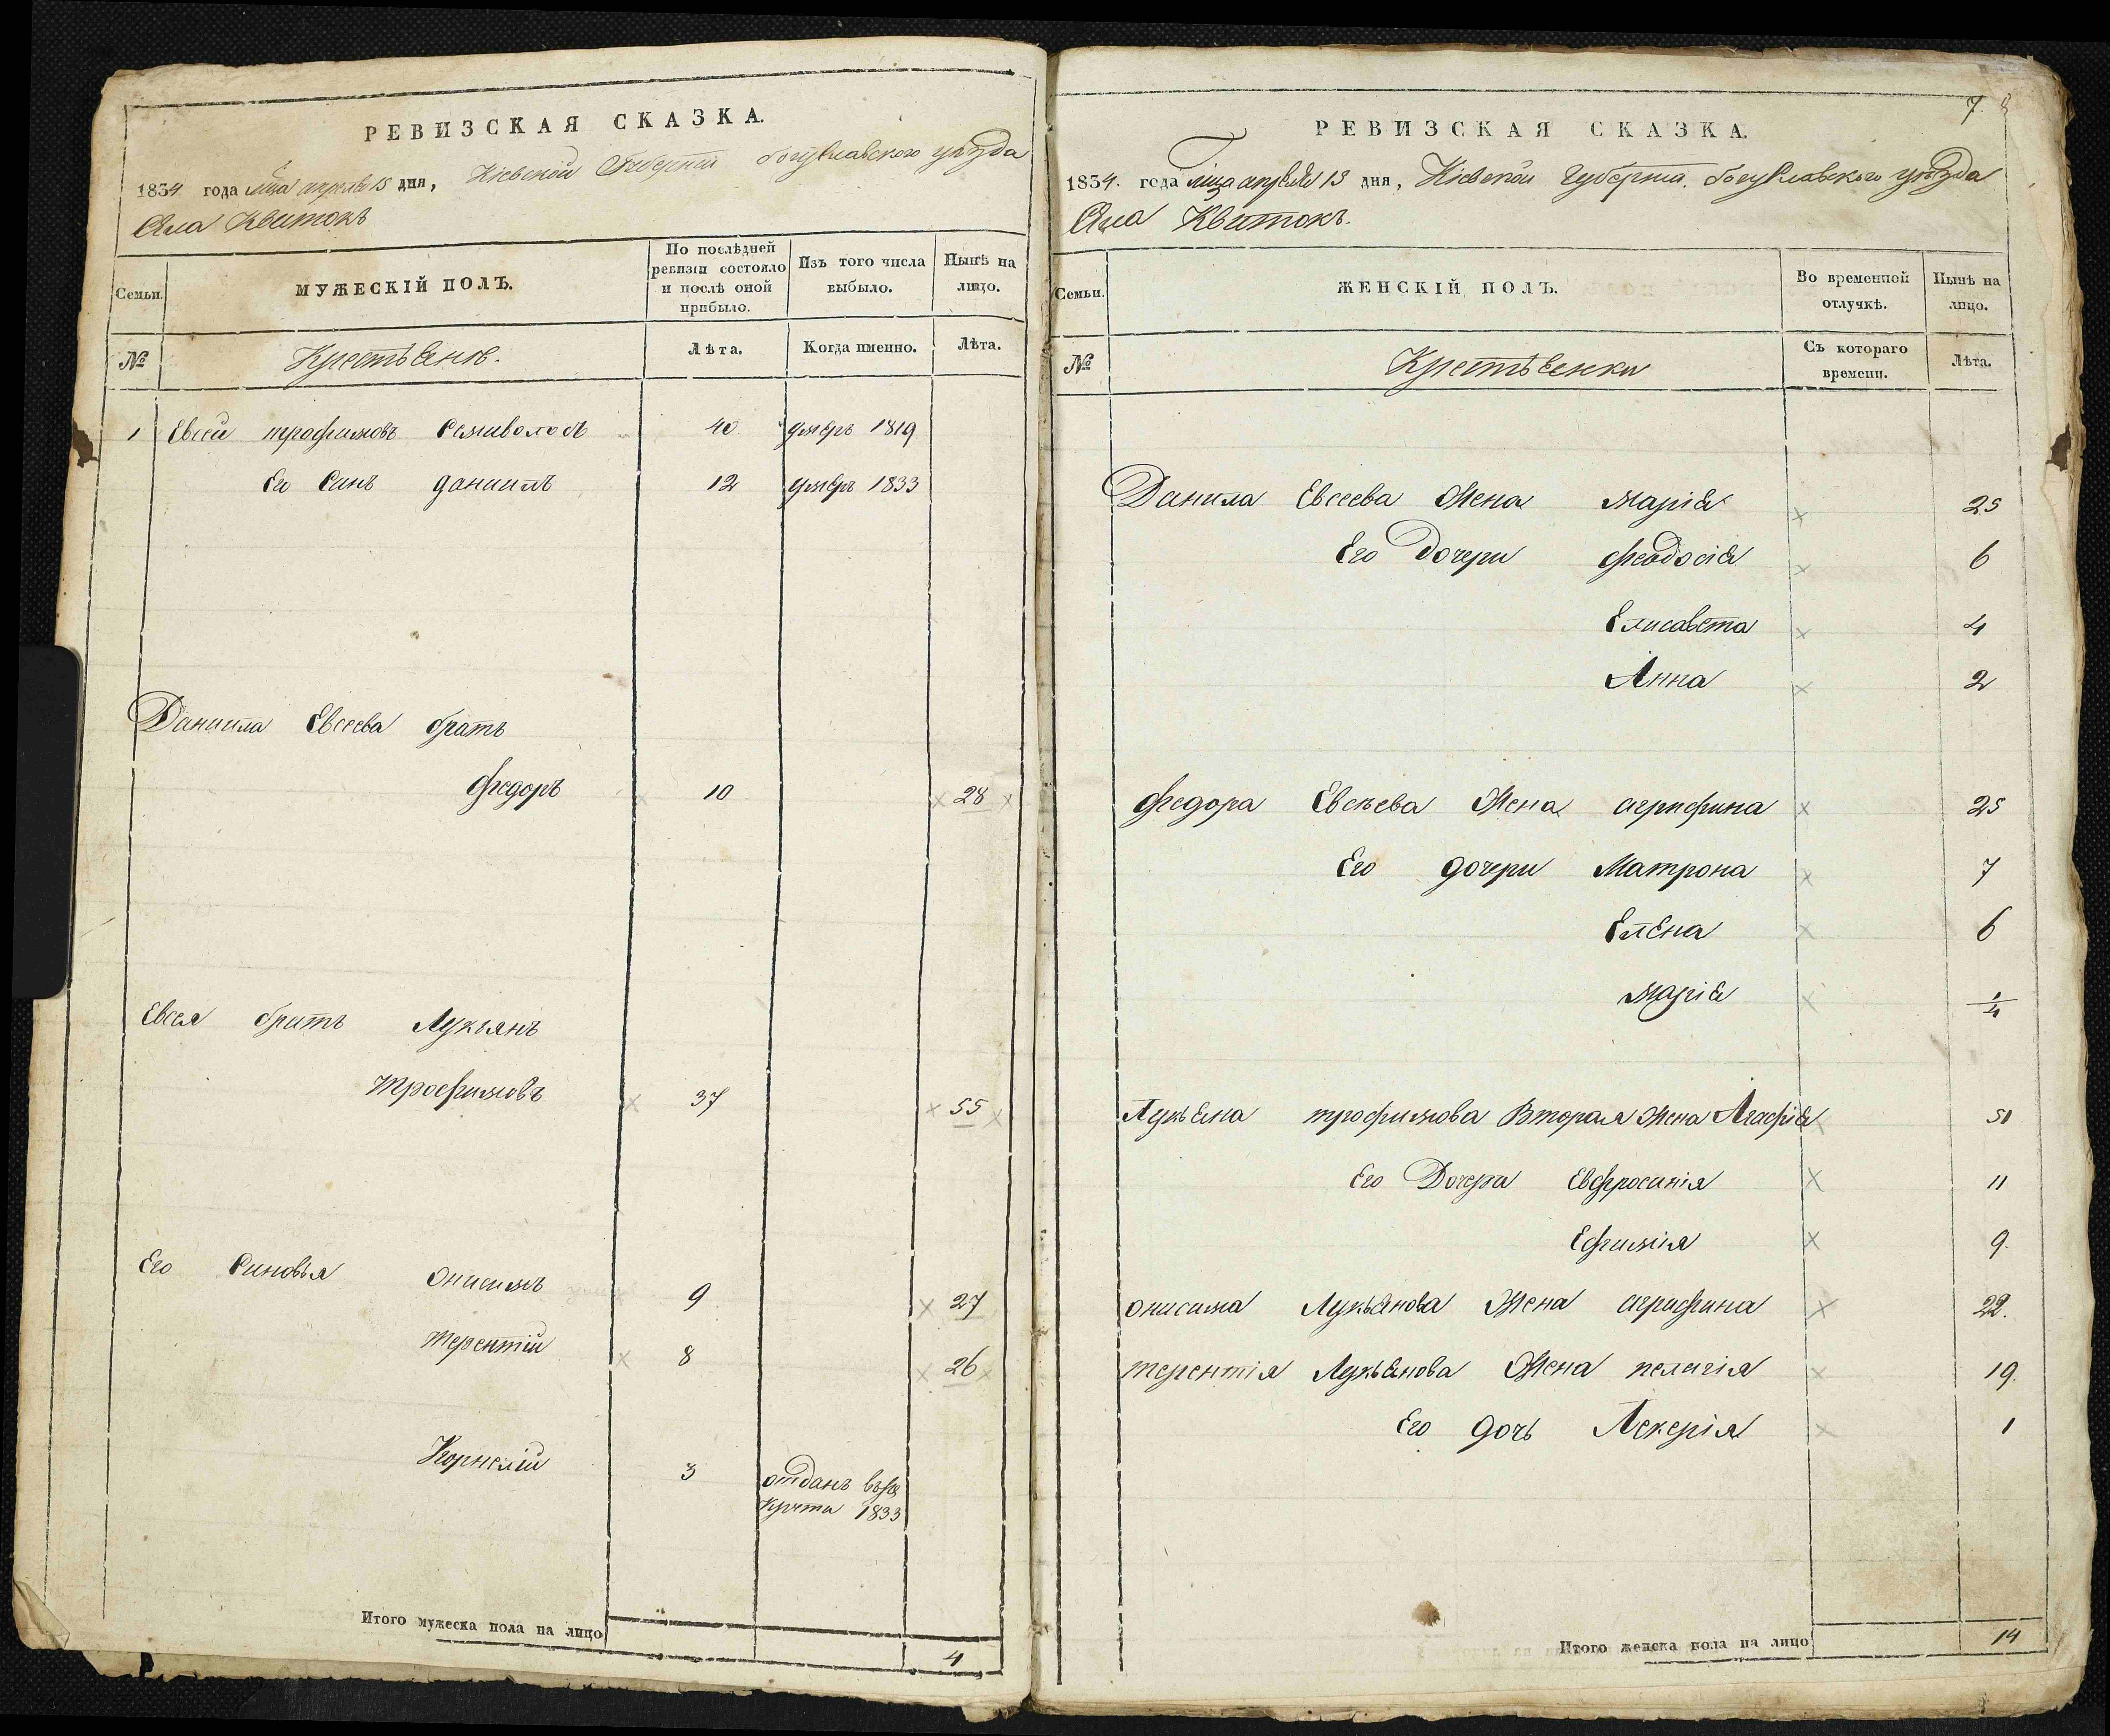 РЕВИЗСКАЯ СКАЗКА.
1834 года мца апреля 15 дня, Кіевской Губерніи богуславского уѣзда
Села Квитокъ
Семьи.
МУЖЕСКІЙ ПОЛЪ.
По послѣдней ревизіи состояло и послѣ оной прибыло.
Изъ того числа выбыло.
Нынѣ на лицо.
№ Крестьяне. Лѣта. Когда именно. Лѣта.
1 Евсей трофимовъ Семиволосъ 40 умеръ 1819
Его Синъ даниилъ 12 умеръ 1833
Даниила Евсеева братъ
федоръ 10 28
Евсея братъ Лукьянъ
трофимовъ 37 55
Его Синовья онисимъ 9 27
терентій 8 26
Корнелій 3 отданъ въре
круты 1833
Итого мужеска пола на лицо 4
7
РЕВИЗСКАЯ СКАЗКА.
1834. года мца апреля 15 дня, Кіевской Губерніи. богуславского уѣзда
Села Квитокъ.
Семьи.
ЖЕНСКІЙ ПОЛЪ.
Во временной отлучкѣ.
Нынѣ на лицо.
№ Крестьянки Съ котораго времени. Лѣта.
Данила Евсеева Жена марія 25
Его Дочери феодосія 6
Елисавета 4
Анна 2
федора Евсеева Жена агрифина 25
Его дочери Матрона 7
Елена 6
марія 1/4
Лукьяна трофимова Вторая Жена Агафія 51
Его Дочери Евфросинія 11
Ефимія 9.
онисима Лукьянова Жена агрифина 22.
терентія Лукьянова Жена пелагія 19.
Его дочь Лекерія 1
Итого женска пола на лицо 14